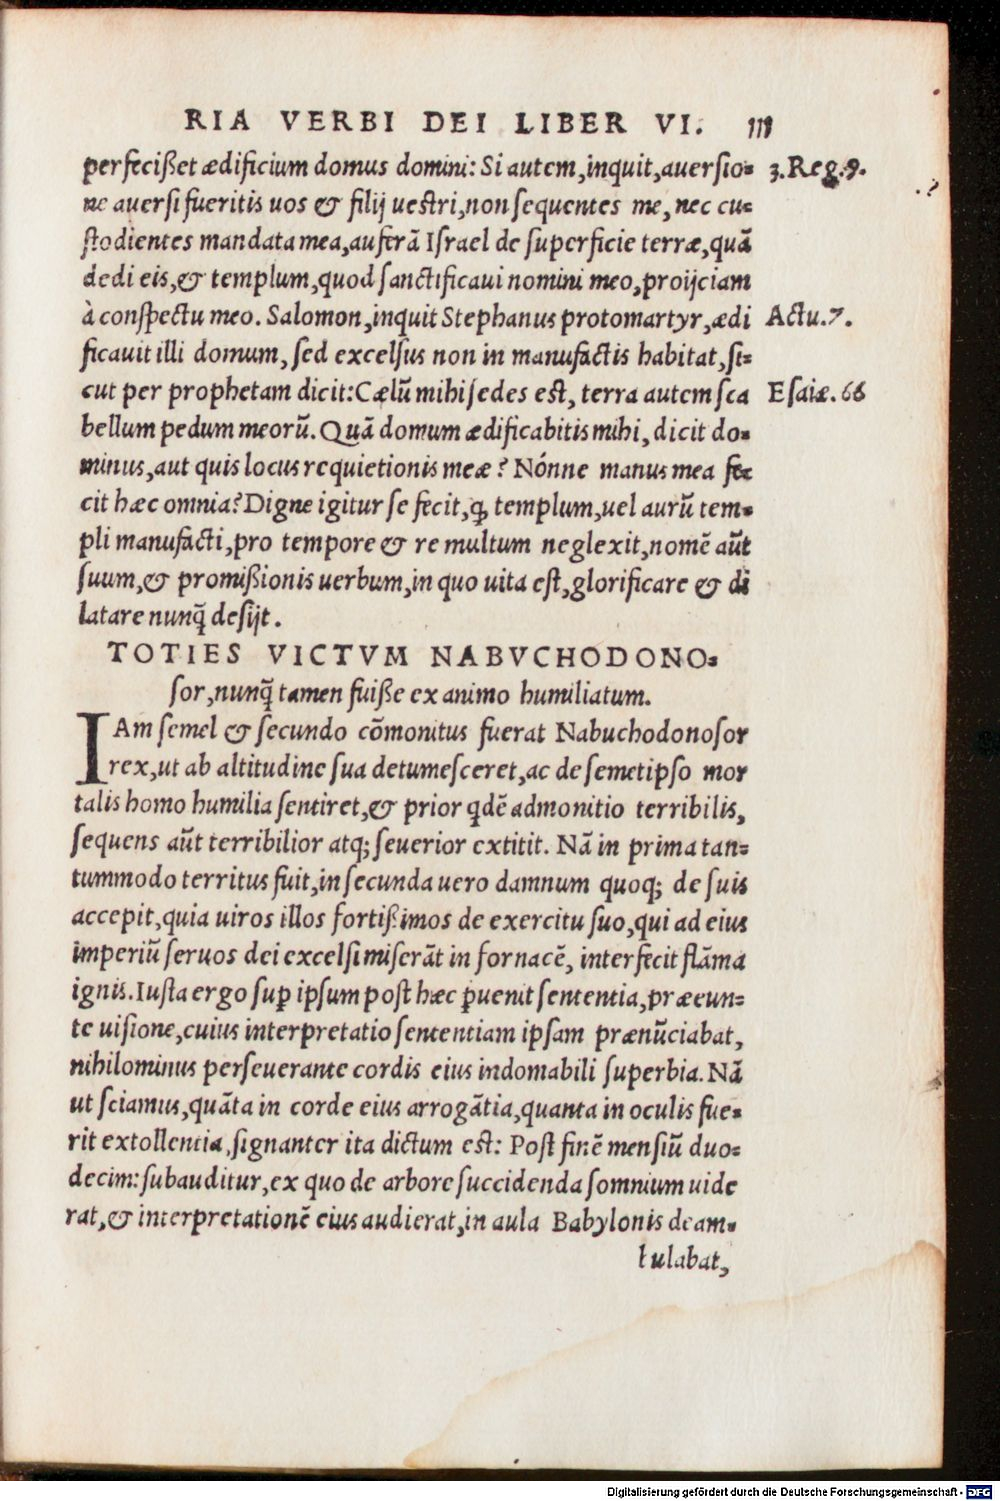 RIA VERBI DEI LIBER VI. 111
perfecißet ædificium domus domini: Si autem, inquit, auersio= 3. Reg. 9.
ne auersi fueritis uos & filij uestri, non sequentes me, nec cu=
stodientes mandata mea, auferā Israel de superficie terræ, quā
dedi eis, & templum, quod sanctificaui nomini meo, proijciam
à conspectu meo. Salomon, inquit Stephanus protomartyr, ædi Actu. 7.
ficauit illi domum, sed excelsus non in manufactis habitat, si=
cut per prophetam dicit: Cælū mihi sedes est, terra autem sca Esaiæ. 66
bellum pedum meorū. Quā domum ædificabitis mihi, dicit do=
minus, aut quis locus requietionis meæ? Nónne manus mea fe=
cit hæc omnia? Digne igitur se fecit, ꝙ templum, uel aurū tem=
pli manufacti, pro tempore & re multum neglexit, nomē aūt
suum, & promißionis uerbum, in quo uita est, glorificare & di
latare nunq̄ desijt.
TOTIES VICTVM NABVCHODONO=
sor, nunq̄ tamen fuiße ex animo humiliatum.
IAm semel & secundo cōmonitus fuerat Nabuchodonosor
rex, ut ab altitudine sua detumesceret, ac de semetipso mor
talis homo humilia sentiret, & prior qdē admonitio terribilis,
sequens aūt terribilior atq; seuerior extitit. Nā in prima tan=
tummodo territus fuit, in secunda uero damnum quoq; de suis
accepit, quia uiros illos fortißimos de exercitu suo, qui ad eius
imperiū seruos dei excelsi miserāt in fornacē, interfecit flāma
ignis. Iusta ergo suꝑ ipsum post hæc ꝑuenit sententia, præeun=
te uisione, cuius interpretatio sententiam ipsam prænūciabat,
nihilominus perseuerante cordis eius indomabili superbia. Nā
ut sciamus, quāta in corde eius arrogātia, quanta in oculis fue=
rit extollentia, signanter ita dictum est: Post finē mensiū duo=
decim: subauditur, ex quo de arbore succidenda somnium uide
rat, & interpretationē eius audierat, in aula Babylonis deam=
bulabat,
Digitalisierung gefördert durch die Deutsche Forschungsgemeinschaft - DFG